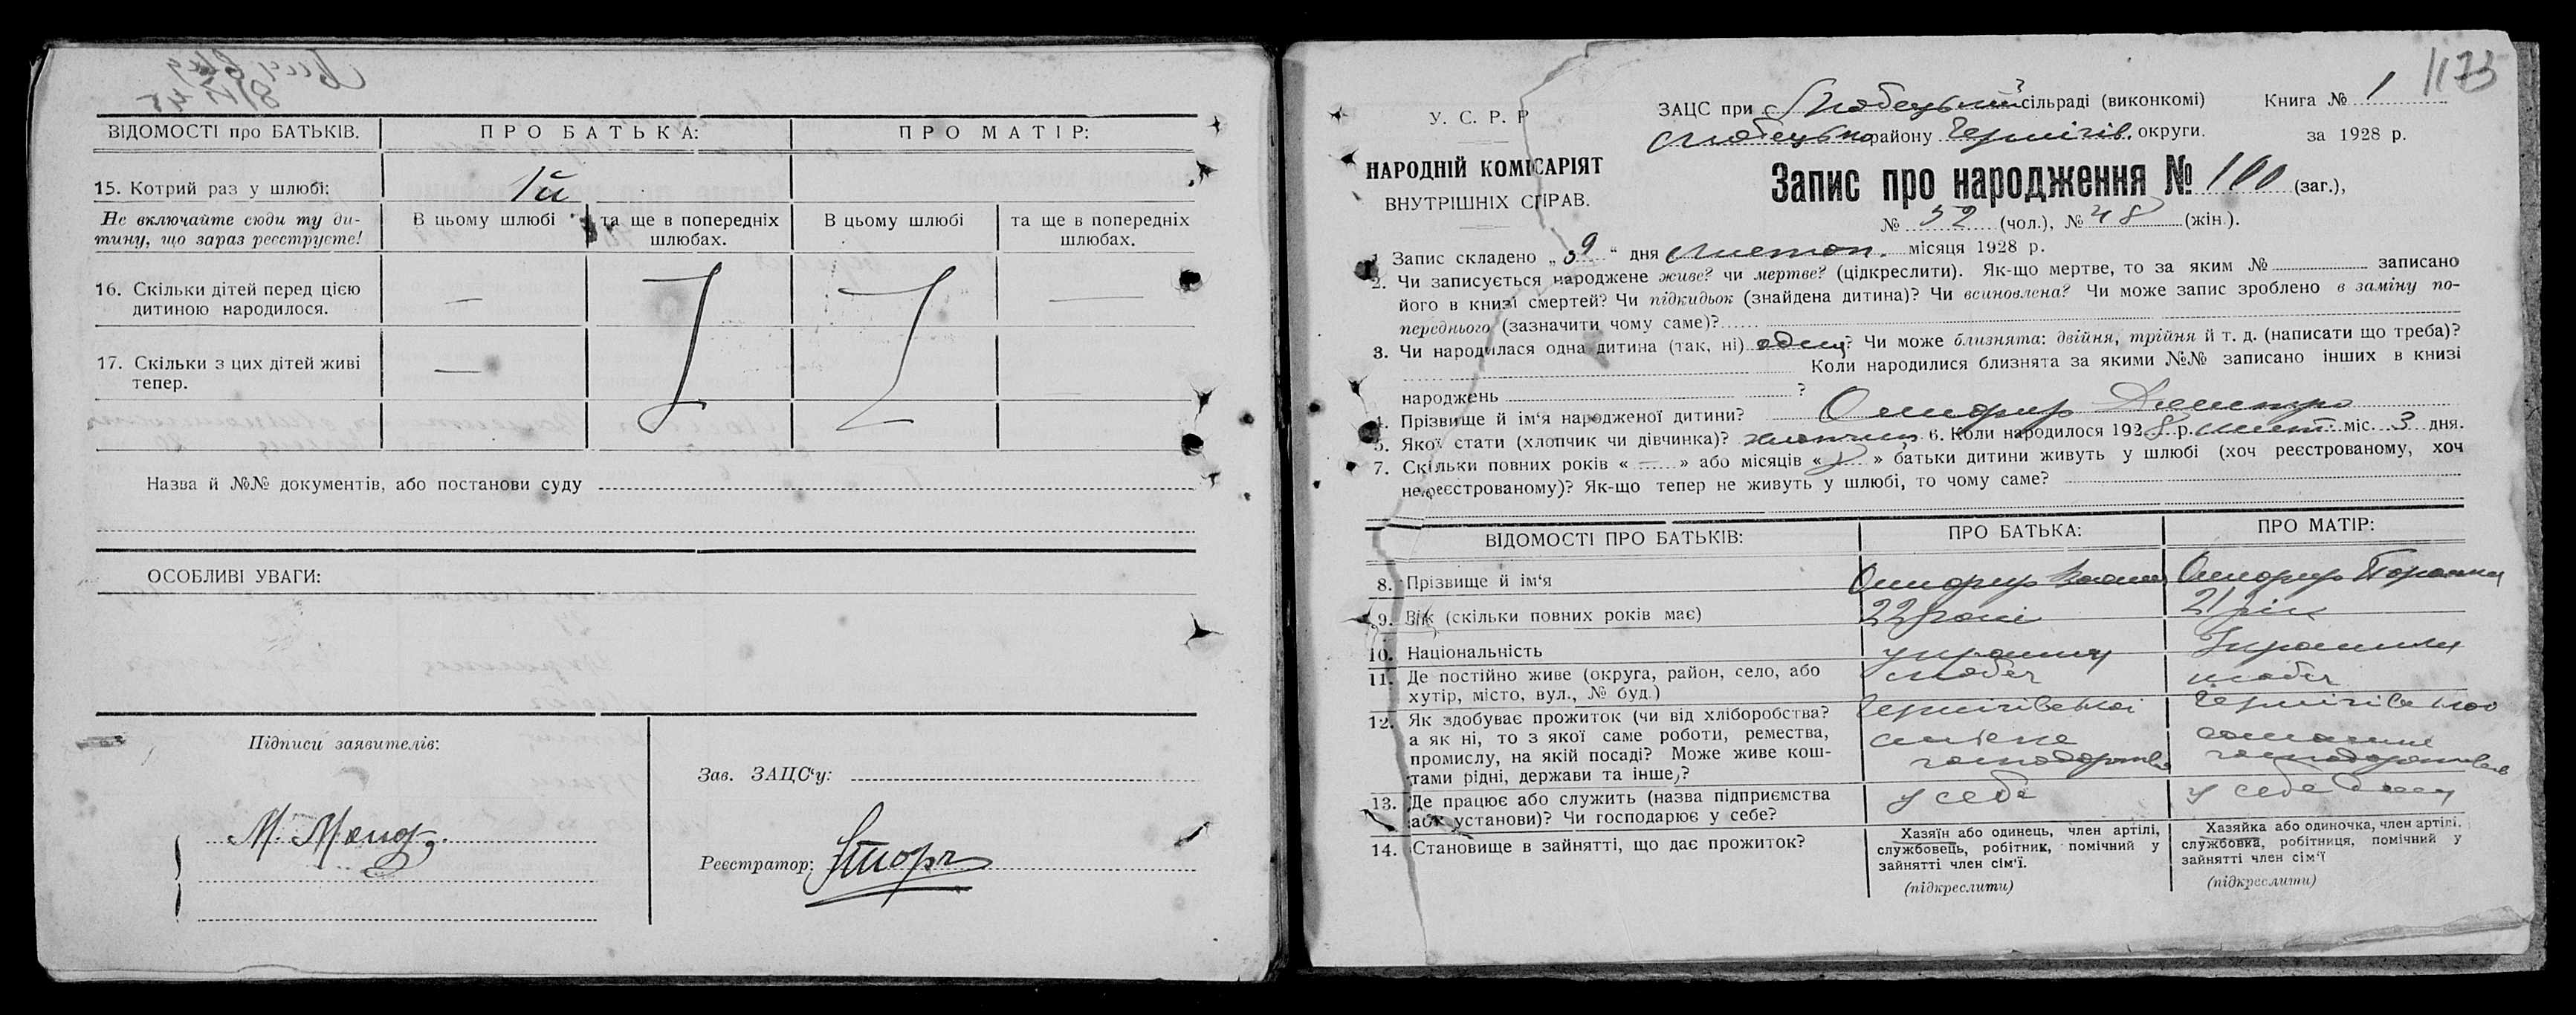 ВІДОМОСТІ про БАТЬКІВ. ПРО БАТЬКА: ПРО МАТІР:
15. Котрий раз у шлюбі: 1й
Не включайте сюди ту ди- В цьому шлюбі та ще в попередніх В цьому шлюбі та ще в попередніх
тину, що зараз реєструєте! шлюбах. шлюбах.
16. Скільки дітей перед цією — —
дитиною народилося.
17. Скільки з цих дітей живі — —
тепер.
Назва й №№ документів, або постанови суду
ОСОБЛИВІ УВАГИ:
Підписи заявителів:
Зав. ЗАЦС'у:
М.
Реєстратор:
1173
У. С. Р. Р
НАРОДНІЙ КОМІСАРІЯТ
ВНУТРІШНІХ СПРАВ.
ЗАЦС при с Любецький сільраді (виконкомі) Книга № 1
Любецько району Чернігів. округи. за 1928 р.
Запис про народження № 100 (заг.),
№ 52 (чол.), № 48 (жін.).
1. Запис складено „ 9 “ дня листоп. місяця 1928 р.
2. Чи записується народжене живе? чи мертве? (цідкреслити). Як-що мертве, то за яким № записано
його в книзі смертей? Чи підкидьок (знайдена дитина)? Чи всиновлена? Чи може запис зроблено в заміну по-
переднього (зазначити чому саме)?
3. Чи народилася одна дитина (так, ні) одна? Чи може близнята: двійня, трійня й т. д. (написати що треба)?
Коли народилися близнята за якими №№ записано інших в книзі
народжень ?
4. Прізвище й ім'я народженої дитини? Дмитро
5. Якої стати (хлопчик чи дівчинка)? хлопчик 6. Коли народилося 1928 р. лист. міс. 3 дня.
7. Скільки повних років « — » або місяців « » батьки дитини живуть у шлюбі (хоч реєстрованому, хоч
нереєстрованому)? Як-що тепер не живуть у шлюбі, то чому саме?
ВІДОМОСТІ ПРО БАТЬКІВ: ПРО БАТЬКА: ПРО МАТІР:
8. Прізвище й ім'я
9. Вік (скільки повних років має) 22 роки 21 рік
10. Національність українец Українка
11. Де постійно живе (округа, район, село, або Любеч Любеч
хутір, місто, вул., № буд.) Чернігівської
12. Як здобуває прожиток (чи від хліборобства?
а як ні, то з якої саме роботи, ремества, сільске
промислу, на якій посаді? Може живе кош- господарство
тами рідні, держави та інше)?
13. Де працює або служить (назва підприємства у себе у себе
або установи)? Чи господарює у себе?
14. Становище в зайнятті, що дає прожиток?
Хазяїн або одинець, член артілі,
службовець, робітник, помічний у
зайнятті член сім'ї.
(підкреслити)
Хазяйка або одиночка, член артілі.
службовка, робітниця, помічний у
зайнятті член сім'ї
(підкреслити)